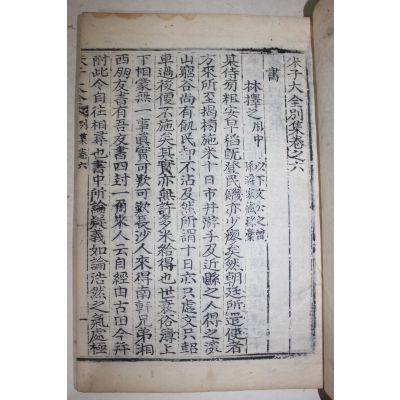 朱子大全別集卷之六
書
林擇之用中
某侍旁粗安早稻既登民饑亦少瘳矣然朝廷所遣使者
方來所至揭榜施米十日市井游手及近縣之人得之深
山窮谷尚有飢民却不沾及然所謂十日亦只虛文只輕
車過後便不施矣其實亦無許多米給得也世衰俗薄上
下相蒙無一事眞實可歎可歎長沙人來得南軒兄弟湘
西朋友書有吾友書四封一角來人云自經由古田今幷
附此令自往相尋也書中所論疑義如論浩然之氣處極